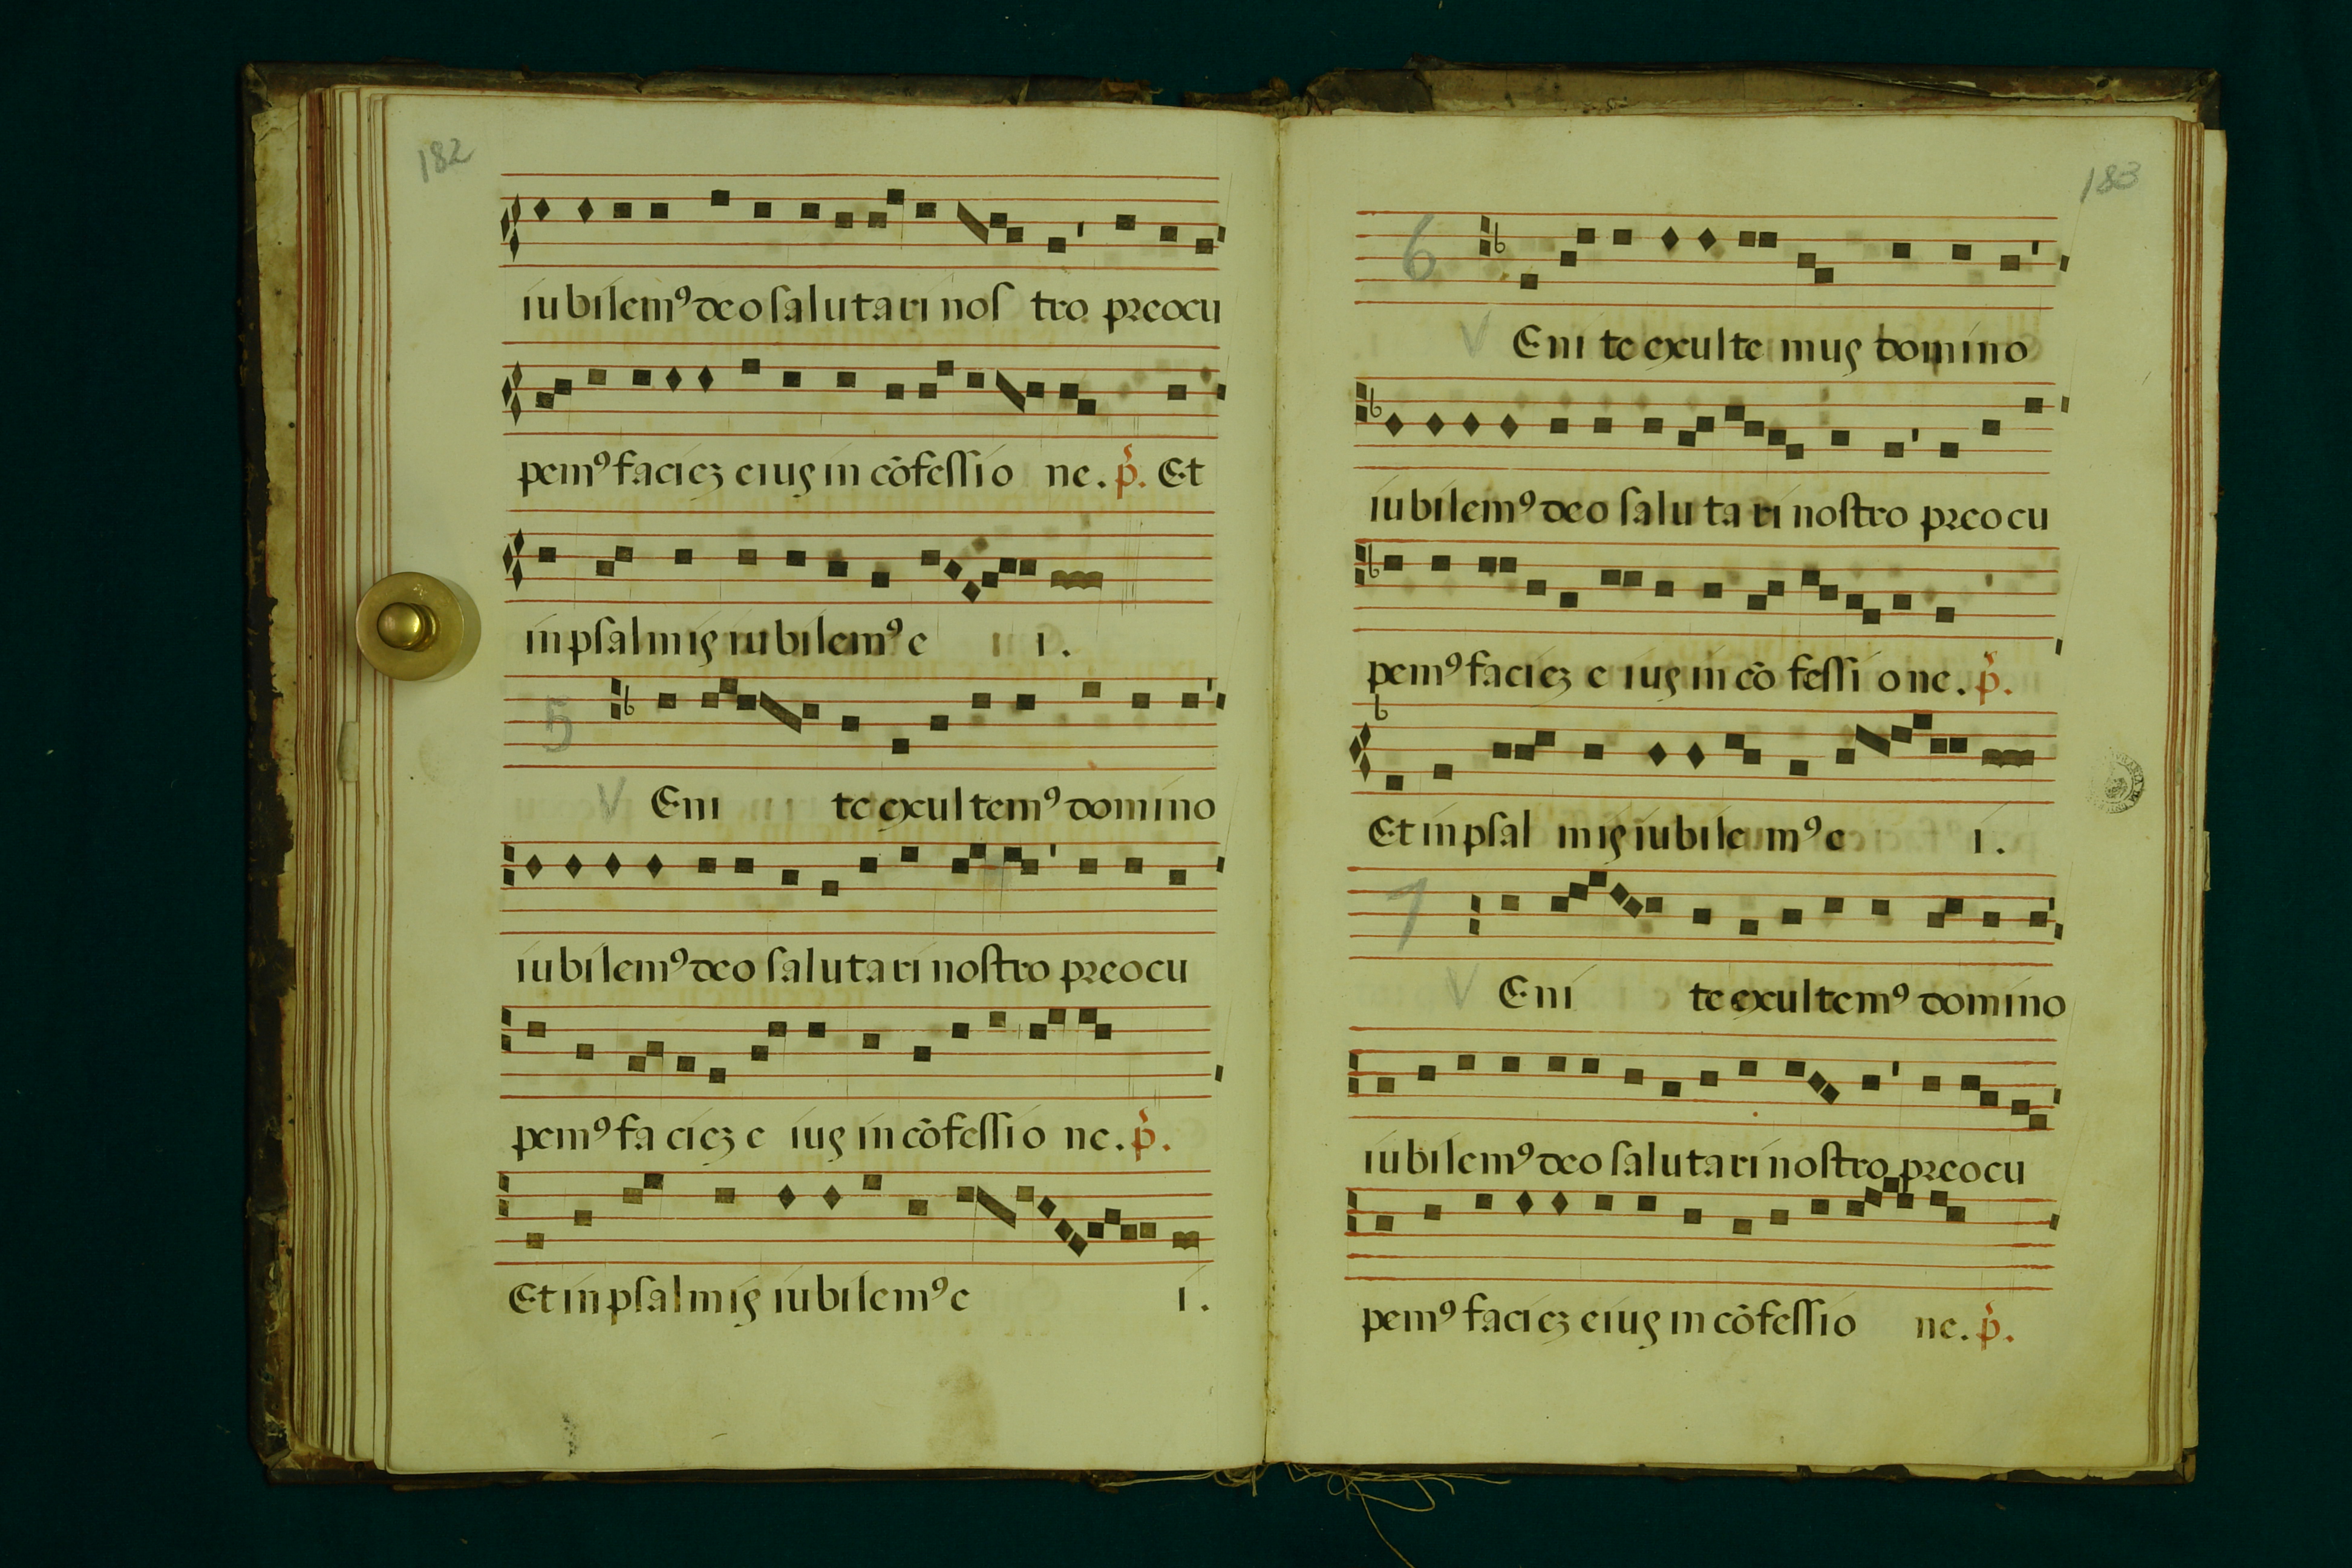 182
iubilemꝰ deo salutari nos tro preocu
pemꝰ facieʒ eius in cōfessio ne. p̄. Et
in psalmis iubilemꝰ e i.
5
V Eni te exultemꝰ domino
iubilemꝰ deo salutari nostro preocu
pemꝰ fa cieʒ e ius in cōfessio ne. p̄.
Et in psalmis iubilemꝰ e i.
183
6
V Eni te exulte mus domino
iubilemꝰ deo salu ta ri nostro preocu
pemꝰ facieʒ e ius in cō fessi one. p̄.
Et in psal mis iubile mꝰ e i.
7
V Eni te exultemꝰ domino
iubilemꝰ deo salutari nostro preocu
pemꝰ facieʒ eius in cōfessio ne. p̄.